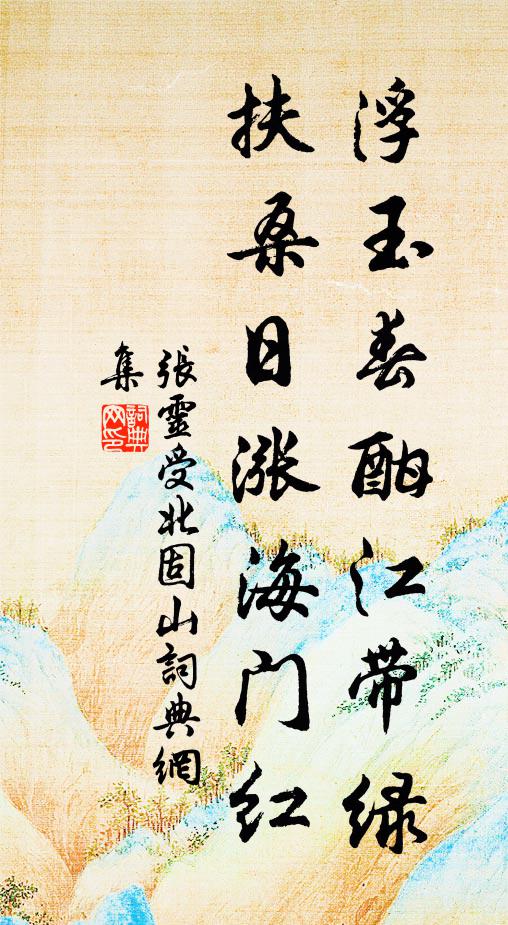 浮玉春酣江带绿
扶桑日涨海门红
张灵受北固山詞典網
集
詞典网印